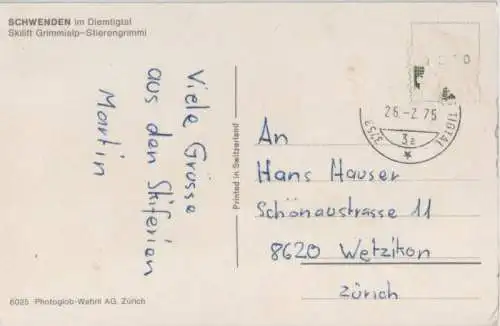 SCHWENDEN im Diemtigtal
Skilift Grimmialp–Stierengrimmi
Viele Grüsse
aus den Skiferien
Martin
Printed in Switzerland
26.-2.75
3753
TIGTAL
An
Hans Hauser
Schönaustrasse 11
8620 Wetzikon
Zürich
6025 Photoglob-Wehrli AG, Zürich